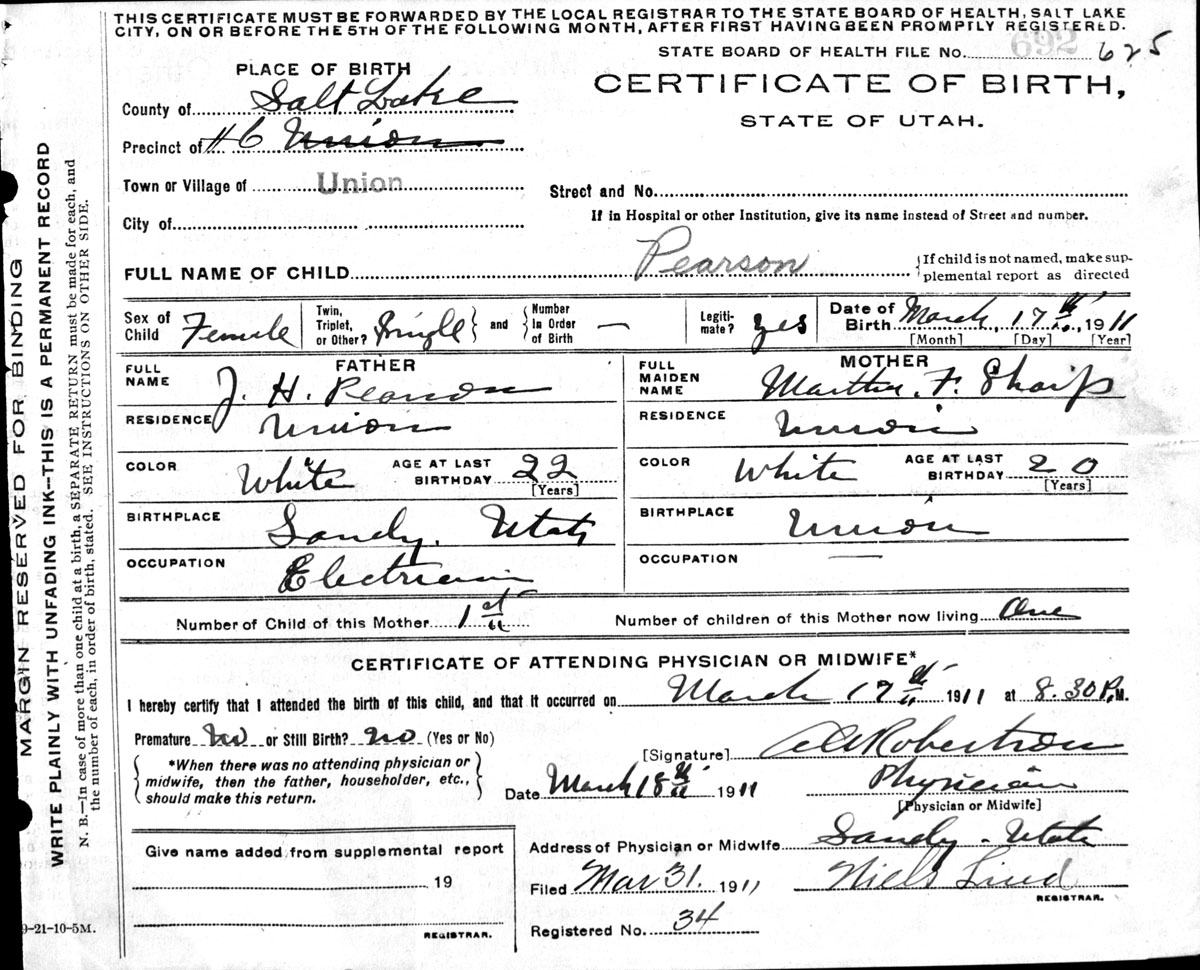 THIS CERTIFICATE MUST BE FORWARDED BY THE LOCAL REGISTRAR TO THE STATE BOARD OF HEALTH, SALT LAKE
CITY, ON OR BEFORE THE 5TH OF THE FOLLOWING MONTH, AFTER FIRST HAVING BEEN PROMPTLY REGISTERED.
STATE BOARD OF HEALTH FILE No. 692 625
PLACE OF BIRTH
CERTIFICATE OF BIRTH,
STATE OF UTAH.
County of Salt Lake
Precinct of #6 Union
Town or Village of Union
Street and No.
City of
If in Hospital or other Institution, give its name instead of Street and number.
FULL NAME OF CHILD Pearson
If child is not named, make sup-
plemental report as directed
Sex of Child Female
Twin, Triplet, or Other? Single and Number In Order of Birth —
Legiti-mate? yes
Date of Birth March, 17th, 1911
[Month] [Day] [Year]
FATHER
FULL NAME J. H. Pearson
RESIDENCE Union
COLOR White AGE AT LAST BIRTHDAY 22
[Years]
BIRTHPLACE Sandy. Utah
OCCUPATION Electrician
MOTHER
FULL MAIDEN NAME Martha. F. Sharp
RESIDENCE Union
COLOR White AGE AT LAST BIRTHDAY 20
[Years]
BIRTHPLACE Union
OCCUPATION —
Number of Child of this Mother 1st Number of children of this Mother now living One
CERTIFICATE OF ATTENDING PHYSICIAN OR MIDWIFE*
I hereby certify that I attended the birth of this child, and that it occurred on March 17th 1911 at 8.30 P.M.
Premature No or Still Birth? No (Yes or No)
*When there was no attending physician or
midwife, then the father, householder, etc.,
should make this return.
[Signature] A A Robertson
Date March 18th 1911 Physician
[Physician or Midwife]
Address of Physician or Midwife Sandy - Utah
Filed Mar 31. 1911 Niels Lind
REGISTRAR.
Registered No. 34
Give name added from supplemental report
19
REGISTRAR.
9-21-10-5M.
MARGIN RESERVED FOR BINDING
WRITE PLAINLY WITH UNFADING INK—THIS IS A PERMANENT RECORD
N. B.—In case of more than one child at a birth, a SEPARATE RETURN must be made for each, and
the number of each, in order of birth, stated. SEE INSTRUCTIONS ON OTHER SIDE.